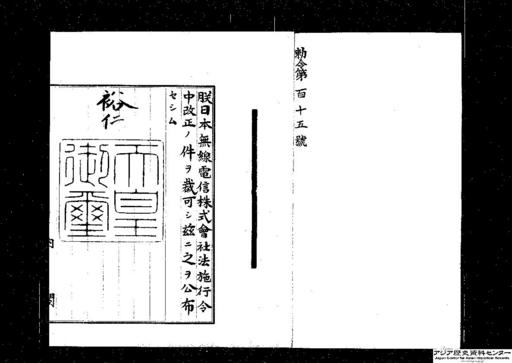 勅令第百十五號
朕日本無線電信株式會社法施行令
中改正ノ件ヲ裁可シ茲ニ之ヲ公布
セシム
裕仁
天皇
御璽
内閣
アジア歴史資料センター
Japan Center for Asian Historical Records